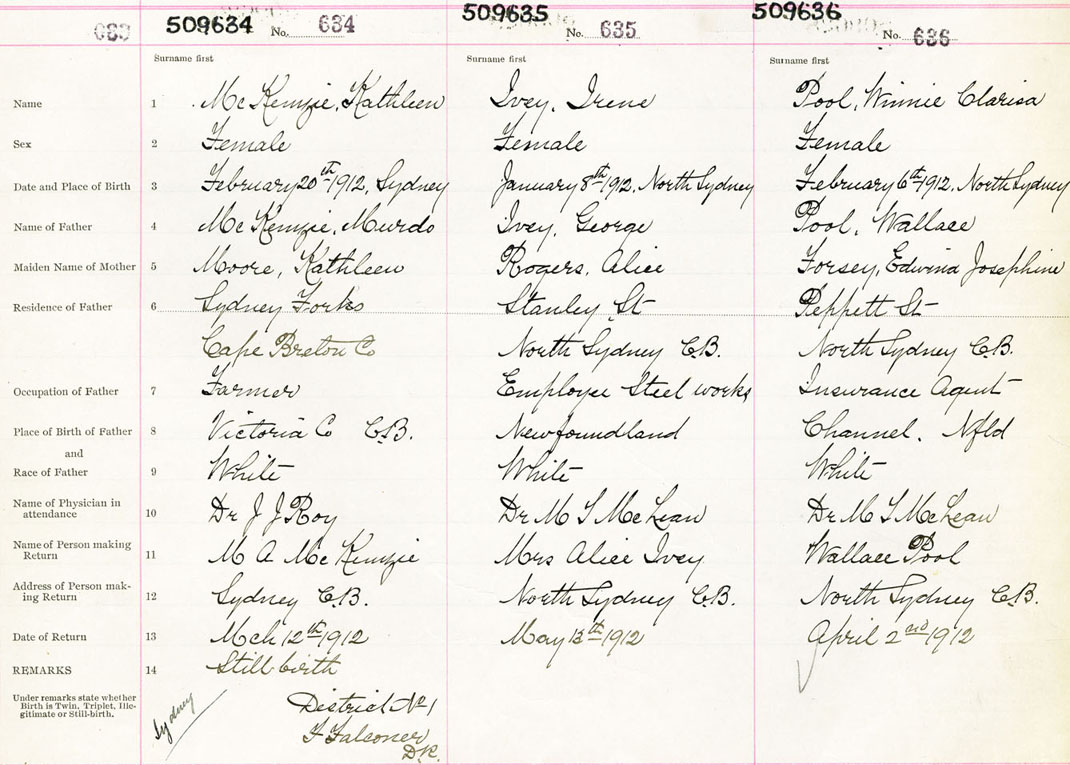 683 509634 No. 634 509635 No. 635 509636 No. 636
Surname first Surname first Surname first
Name 1 McKenzie, Kathleen Ivey, Irene Pool, Winnie Clarisa
Sex 2 Female Female Female
Date and Place of Birth 3 February 20th 1912, Sydney January 8th 1912, North Sydney February 6th 1912, North Sydney
Name of Father 4 McKenzie, Murdo Ivey, George Pool, Wallace
Maiden Name of Mother 5 Moore, Kathleen Rogers, Alice Forsey, Edwina Josephine
Residence of Father 6 Sydney Forks Stanley St Peppett St
Cape Breton Co North Sydney C.B. North Sydney C.B.
Occupation of Father 7 Farmer Employee Steel works Insurance Agent
Place of Birth of Father 8 Victoria Co C.B. Newfoundland Channel, Nfld
and
Race of Father 9 White White White
Name of Physician in
attendance 10 Dr J J Roy Dr M T McLean Dr M T McLean
Name of Person making
Return 11 M A McKenzie Mrs Alice Ivey Wallace Pool
Address of Person mak-
ing Return 12 Sydney C.B. North Sydney C.B. North Sydney C.B.
Date of Return 13 Mch 12th 1912 May 13th 1912 April 2nd 1912
REMARKS 14 Still birth
Under remarks state whether
Birth is Twin, Triplet, Ille-
gitimate or Still-birth.
Sydney
District No 1
F Falconer
D.R.